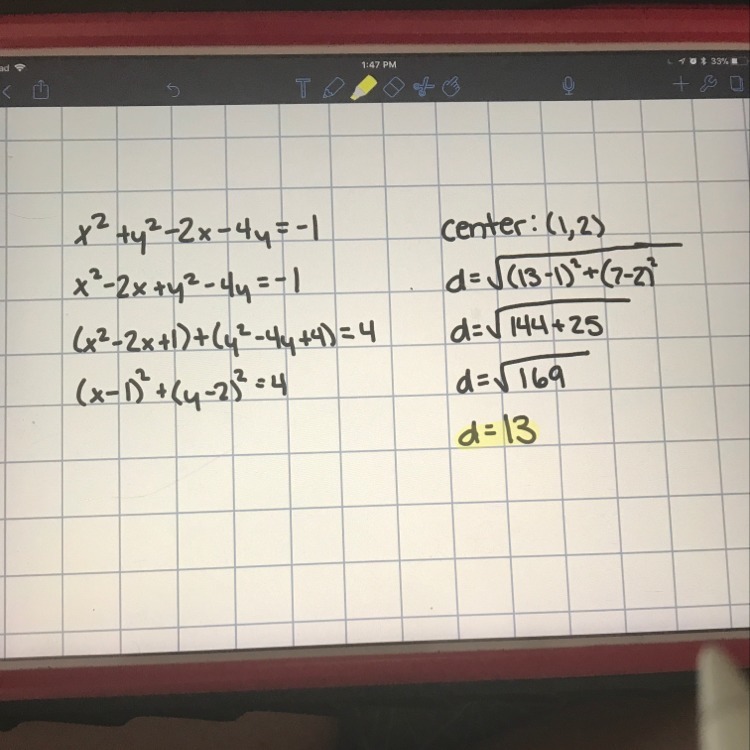 ad 1:47 PM 33%
T
x²+y²-2x-4y=-1
x²-2x+y²-4y=-1
(x²-2x+1)+(y²-4y+4)=4
(x-1)²+(y-2)²=4
center: (1,2)
d=√(13-1)²+(7-2)²
d=√144+25
d=√169
d=13